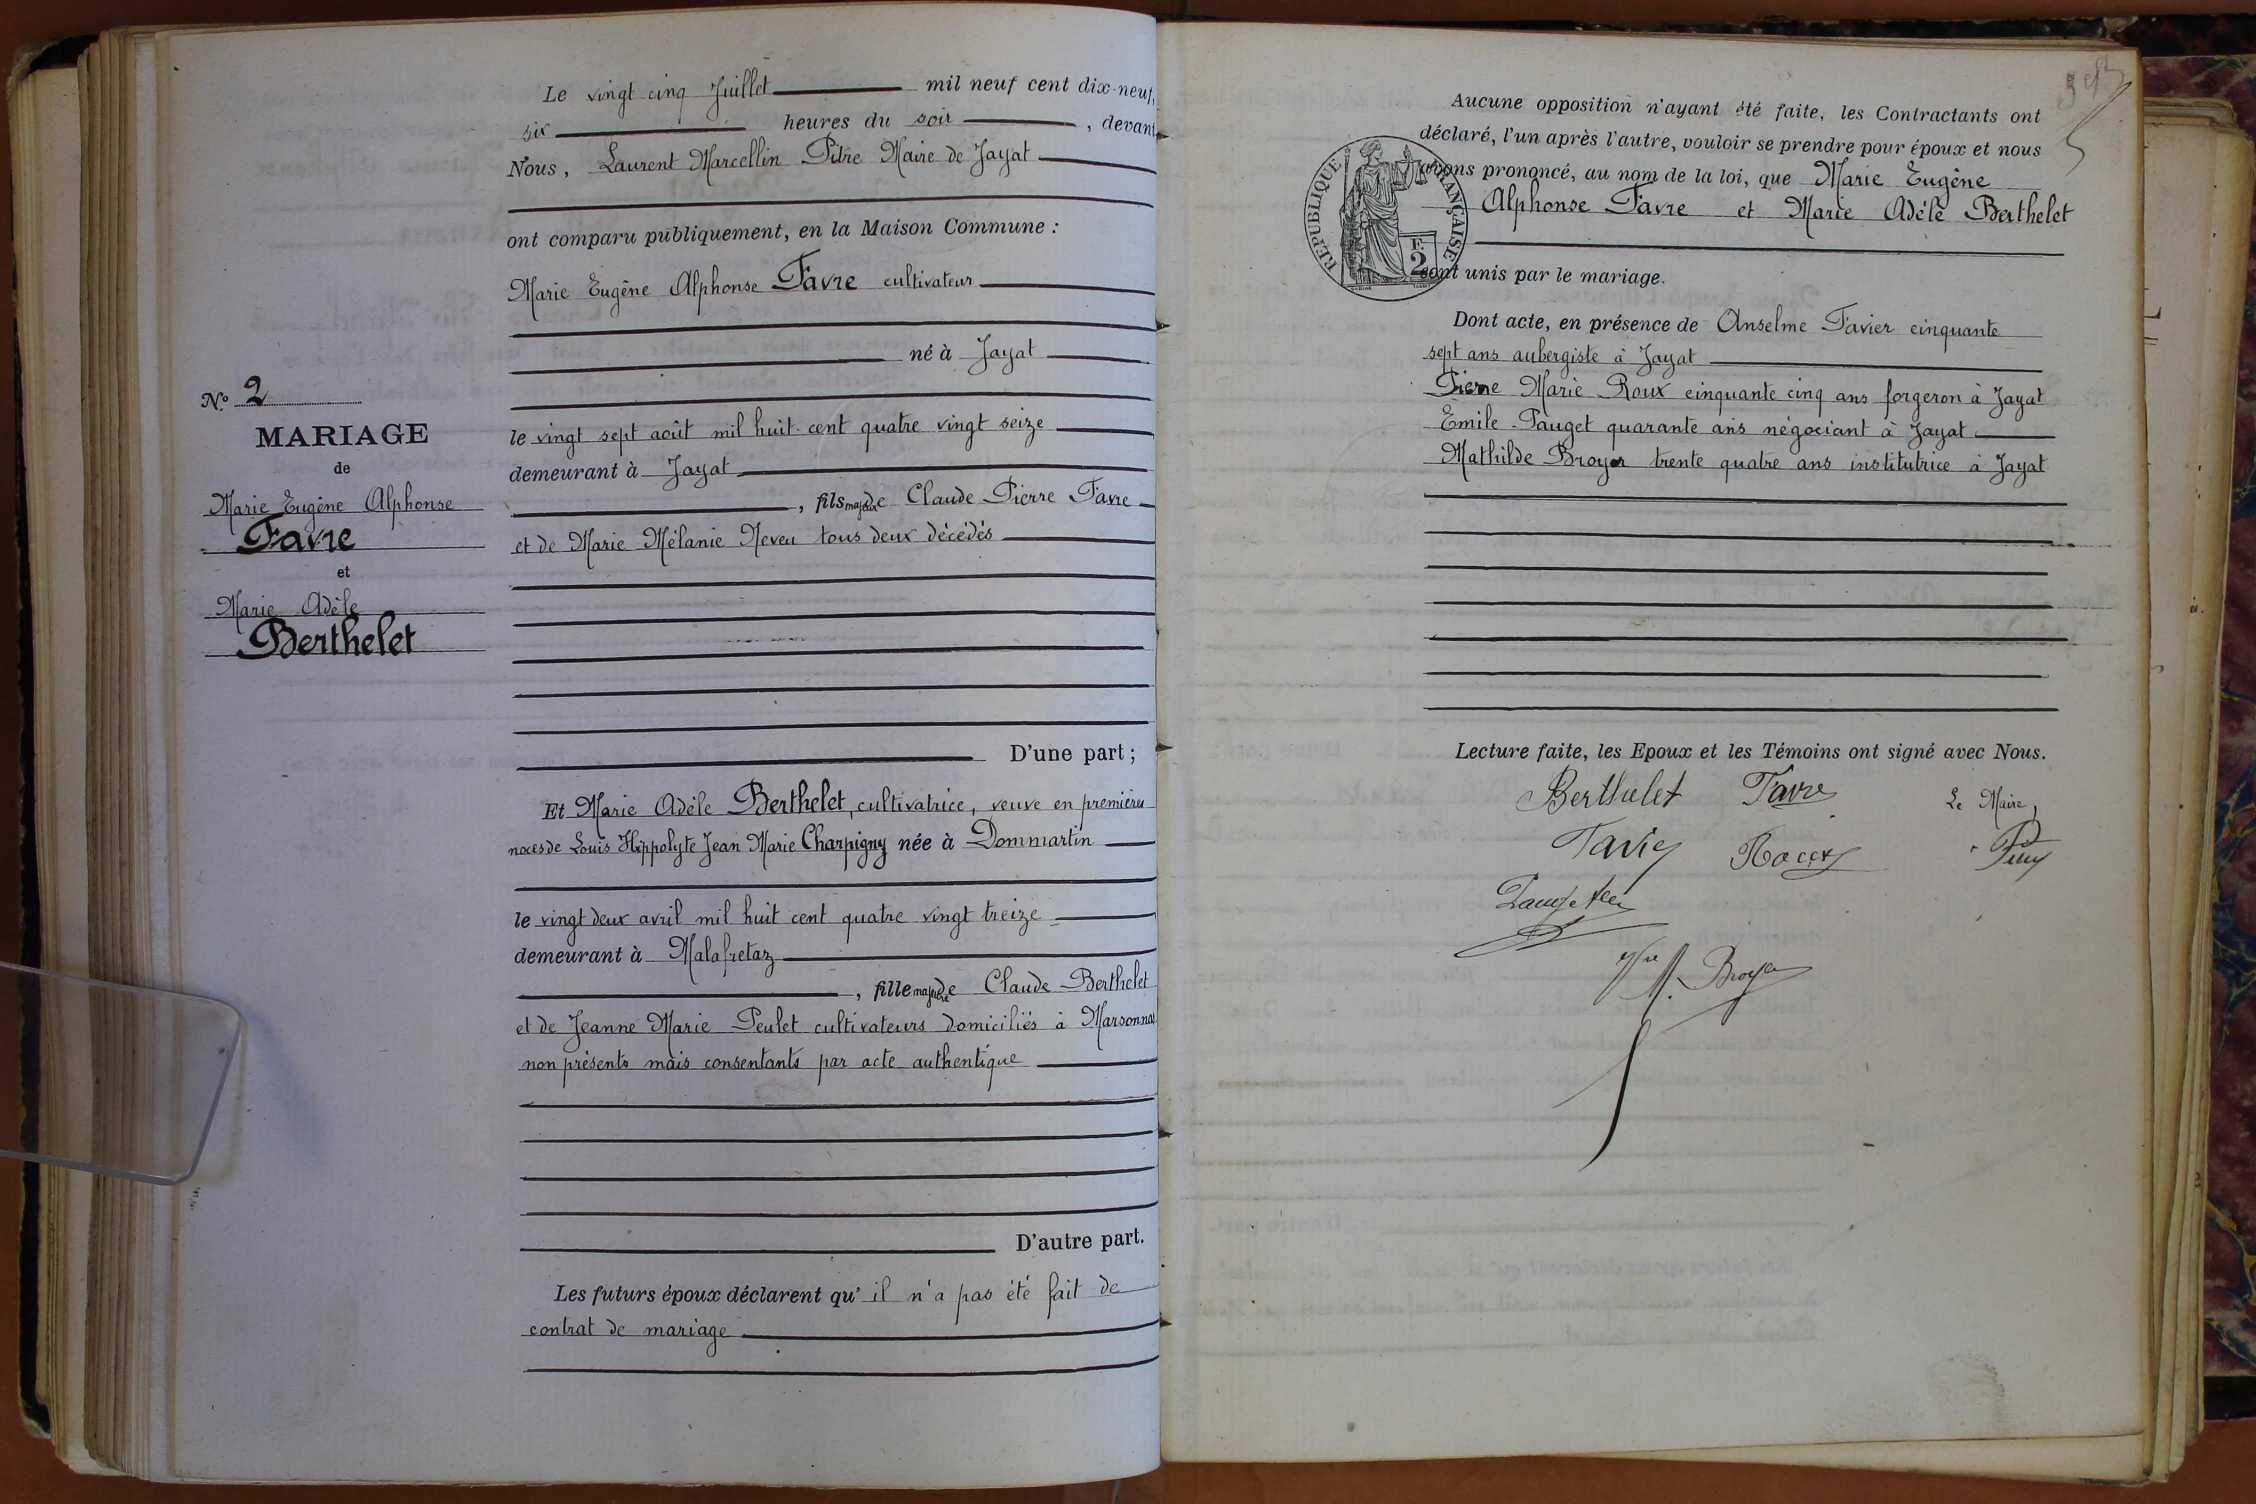 Le vingt cinq Juillet mil neuf cent dix-neuf,
six heures du soir, devant
Nous, Laurent Marcellin Pitre Maire de Jayat
ont comparu publiquement, en la Maison Commune :
Marie Eugène Alphonse Favre cultivateur
né à Jayat
le vingt sept août mil huit cent quatre vingt seize
demeurant à Jayat
, fils majeur de Claude Pierre Favre
et de Marie Mélanie Neveu tous deux décédés
D'une part ;
Et Marie Adèle Berthelet, cultivatrice, veuve en premières
noces de Louis Hippolyte Jean Marie Charpigny née à Dommartin
le vingt deux avril mil huit cent quatre vingt treize
demeurant à Malafretaz
, fille majeure de Claude Berthelet
et de Jeanne Marie Peulet cultivateurs domiciliés à Marsonnas
non présents mais consentants par acte authentique
D'autre part.
Les futurs époux déclarent qu'il n'a pas été fait de
contrat de mariage
N° 2
MARIAGE
de
Marie Eugène Alphonse
Favre
et
Marie Adèle
Berthelet
Aucune opposition n'ayant été faite, les Contractants ont
déclaré, l'un après l'autre, vouloir se prendre pour époux et nous
avons prononcé, au nom de la loi, que Marie Eugène
Alphonse Favre et Marie Adèle Berthelet
sont unis par le mariage.
RÉPUBLIQUE FRANÇAISE
F.
2
Dont acte, en présence de Anselme Favier cinquante
sept ans aubergiste à Jayat
Pierre Marie Roux cinquante cinq ans forgeron à Jayat
Émile Pauget quarante ans négociant à Jayat
Mathilde Broyer trente quatre ans institutrice à Jayat
Lecture faite, les Epoux et les Témoins ont signé avec Nous.
Berthelet Favre Le Maire,
Favier Roux Pitre
M. Broyer